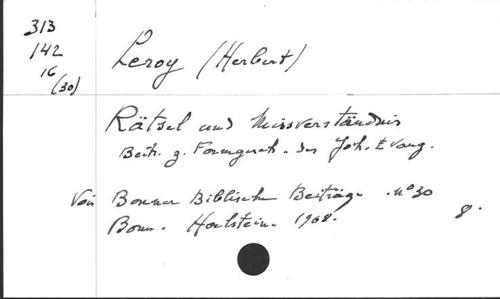 313
142
16
(30)
Leroy (Herbert)
Rätsel und Missverständnis
Beitr. z. Formgesch. des Joh. Evang.
Voir Bonner Biblische Beiträge. n° 30
Bonn. Hanstein. 1968. 8°.